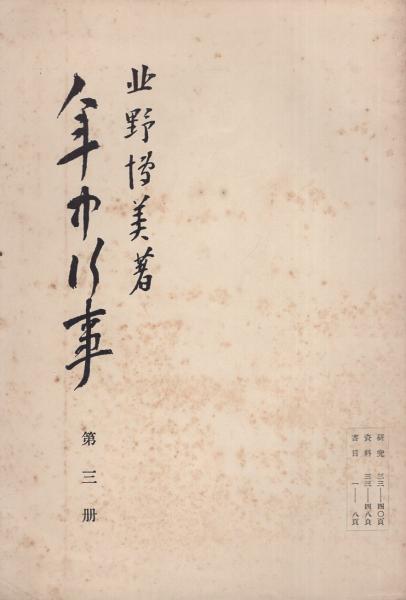 北野博美著
年中行事
第三册
研究 三三—四〇頁
資料 三三—四八頁
書目 一—八頁